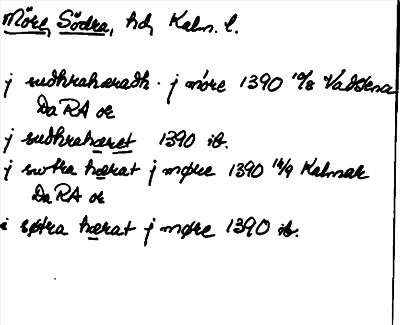 Möre, Södra, hd, Kalm. l.
j sudhrahæradh . j möre 1390 10/8 Vadstena
DaRA or
j sudhrahæret 1390 ib.
j swtra hærat j møre 1390 14/9 Kalmar
DaRA or
i søtra hærat j møre 1390 ib.